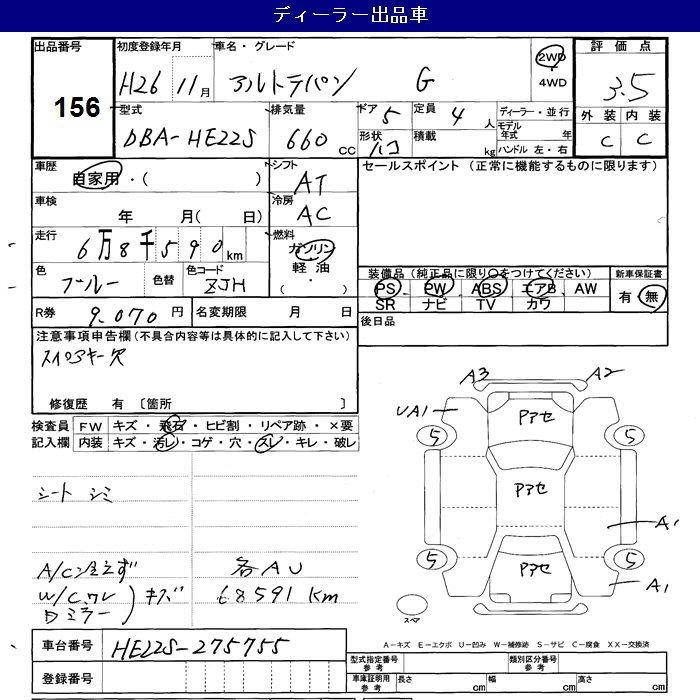 ディーラー出品車
出品番号 初度登録年月 車名・グレード 評価点
156
H26 11月 アルトラパン G 2WD・4WD 3.5
型式 排気量 ドア 5 定員 4人 ディーラー・並行 外装 内装
DBA-HE22S 660cc 形状 ハコ 積載 kg モデル年式 年 C C
ハンドル 左・右
車歴 自家用・( ) シフト AT セールスポイント(正常に機能するものに限ります)
車検 年 月( 日) 冷房 AC
走行 6万8千590km 燃料 ガソリン
軽油
( ・ )
色 ブルー 色替 色コード ZJH 装備品(純正品に限り○をつけてください) 新車保証書
PS PW ABS エアB AW 有・無
SR ナビ TV カワ
R券 9,070円 名変期限 月 日 後日品
注意事項申告欄(不具合内容等は具体的に記入して下さい)
スペアキー欠
修復歴 有 〔箇所 〕
検査員記入欄 FW キズ・飛石・ヒビ割・リペア跡・×要
内装 キズ・汚レ・コゲ・穴・スレ・キレ・破レ
A3 A2
UA1 Pアセ
5 5
シート シミ Pアセ
A1
A/C冷えず 各AU 5 Pアセ 5
W/Cワレ キズ 68591km A1
Dミラー
スペア
車台番号 HE22S-275755 A-キズ E-エクボ U-凹み W-補修跡 S-サビ C-腐食 XX-交換済
登録番号 型式指定番号参考 類別区分番号参考
車庫証明用参考 長さ cm 幅 cm 高さ cm